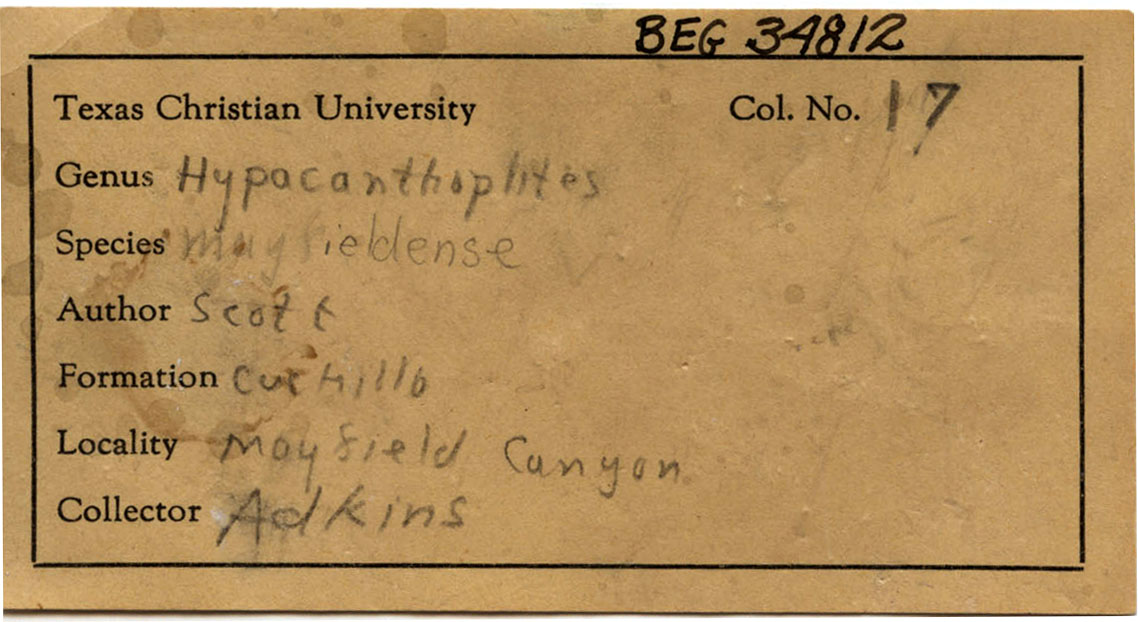 BEG 34812
Texas Christian University Col. No. 17
Genus Hypacanthoplites
Species Mayfieldense
Author Scott
Formation Cuchillo
Locality Mayfield Canyon
Collector Adkins